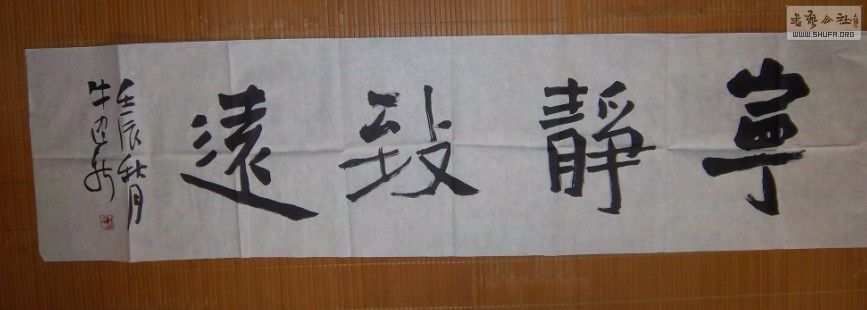 寧靜致遠
壬辰秋月
书艺公社
WWW.SHUFA.ORG